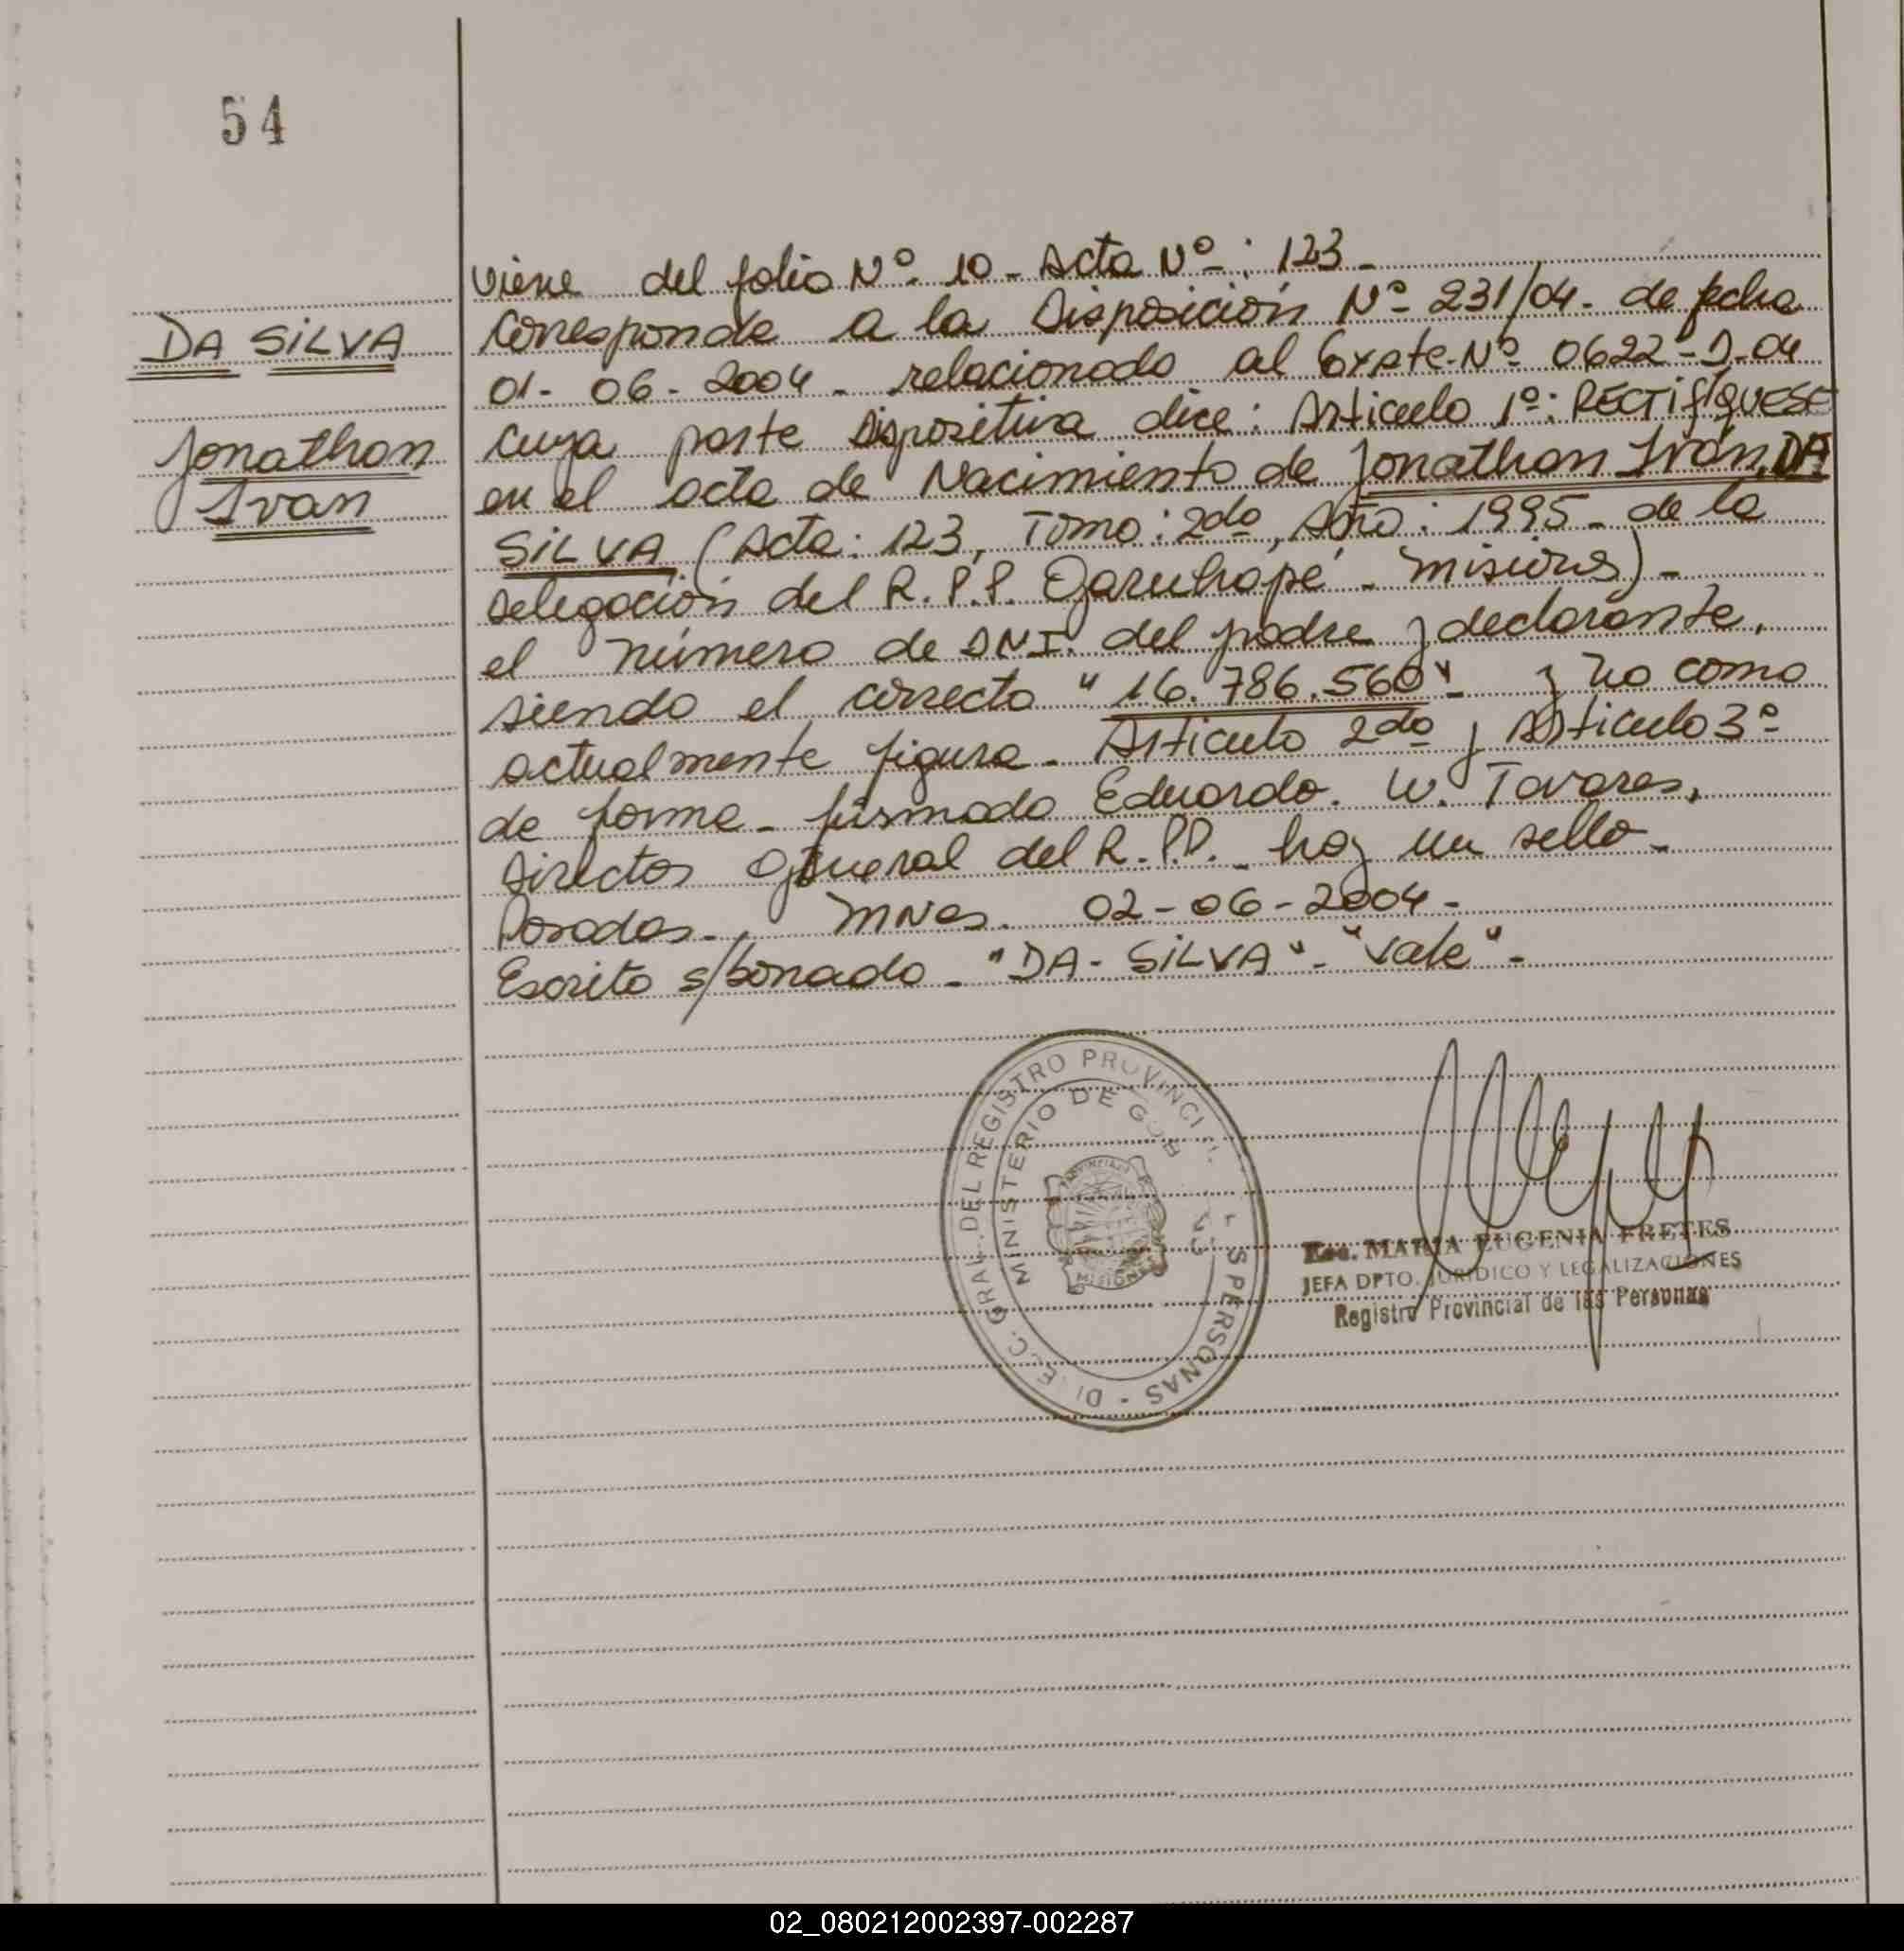 54
viene del folio Nº 10 - Acta Nº: 123 -
DA SILVA
Corresponde a la Disposición Nº 231/04 - de fecha
01 - 06 - 2004 - relacionado al Expte. Nº 0622 - D - 04
Jonathan
Ivan
cuya parte Dispositiva dice: Articulo 1º: RECTIFIQUESE
en el acta de Nacimiento de Jonathan Iván DA
SILVA (Acta: 123, Tomo: 2do, Año: 1995 - de la
Delegación del R.P.P. Garuhapé - Misiones) -
el número de DNI. del padre y declarante,
siendo el correcto "16.786.560" - y no como
actualmente figura - Articulo 2do y Articulo 3º
de forma - firmado Eduardo. W. Tavares,
Director General del R.P.P. - hay un sello -
Posadas -, Mnes. 02 - 06 - 2004 -
Escrito s/borrado - "DA - SILVA" - "Vale" -
GRAL. DEL REGISTRO
PERSONAS
MINISTERIO DE
MISIONES
Esc. MARIA EUGENIA FRETES
JEFA DPTO. JURIDICO Y LEGALIZACIONES
Registro Provincial de las Personas
02_080212002397-002287